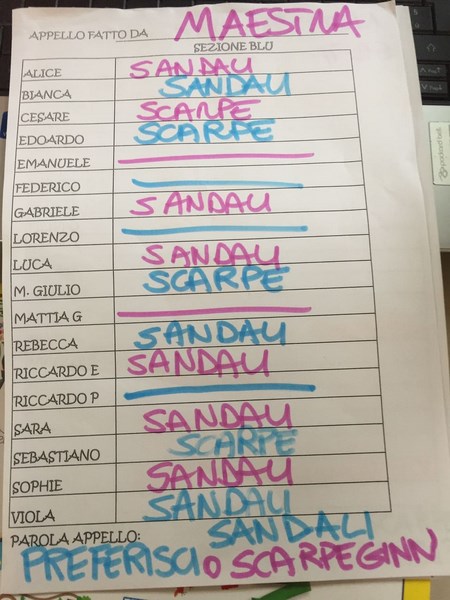 APPELLO FATTO DA MAESTRA
SEZIONE BLU
ALICE SANDALI
BIANCA SANDALI
CESARE SCARPE
EDOARDO SCARPE
EMANUELE
FEDERICO
GABRIELE SANDALI
LORENZO
LUCA SANDALI
M. GIULIO SCARPE
MATTIA G
REBECCA SANDALI
RICCARDO E SANDALI
RICCARDO P
SARA SANDALI
SEBASTIANO SCARPE
SOPHIE SANDALI
VIOLA SANDALI
PAROLA APPELLO: SANDALI
PREFERISCI O SCARPEGINN